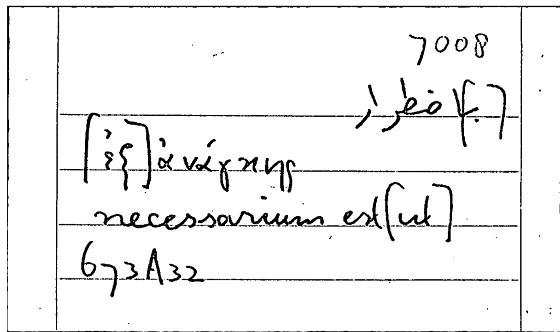 7008
[ἐξ] ἀνάγκης
necessarium est [ut]
673A32